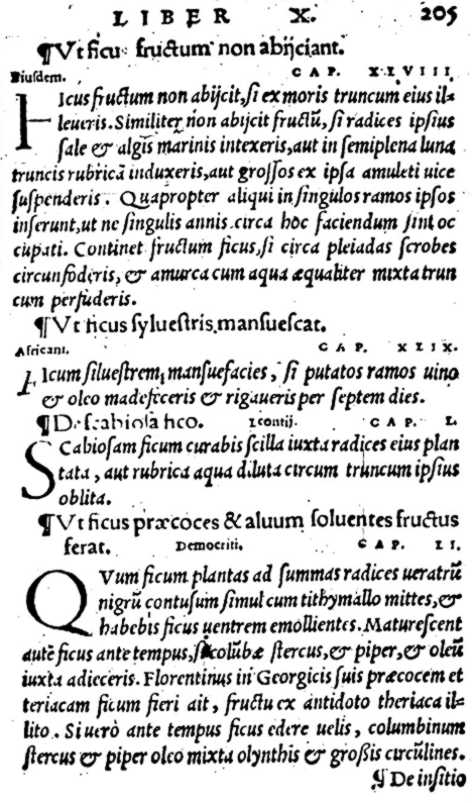 LIBER X. 205
¶Vt ficus fructum non abijciant.
Eiusdem. CAP. XLVIII.
FIcus fructum non abijcit, si ex moris truncum eius il-
leueris. Similiter non abijcit fructũ, si radices ipsius
sale & algis marinis intexeris, aut in semiplena luna
truncis rubricã induxeris, aut grossos ex ipsa amuleti uice
suspenderis. Quapropter aliqui in singulos ramos ipsos
inserunt, ut ne singulis annis circa hoc faciendum sint oc
cupati. Continet fructum ficus, si circa pleiadas scrobes
circunfoderis, & amurca cum aqua æqualiter mixta trun
cum perfuderis.
¶Vt ficus syluestris mansuescat.
Africani. CAP. XLIX.
FIcum siluestrem mansuefacies, si putatos ramos uino
& oleo madefeceris & rigaueris per septem dies.
¶De scabiosa fico. Leontij. CAP. L.
SCabiosam ficum curabis scilla iuxta radices eius plan
tata, aut rubrica aqua diluta circum truncum ipsius
oblita.
¶Vt ficus præcoces & aluum soluentes fructus
ferat. Democriti. CAP. LI.
QVum ficum plantas ad summas radices ueratrũ
nigrũ contusum simul cum tithymallo mittes, &
habebis ficus uentrem emollientes. Maturescent
autẽ ficus ante tempus, si colũbæ stercus, & piper, & oleũ
iuxta adieceris. Florentinus in Georgicis suis præcocem et
teriacam ficum fieri ait, fructu ex antidoto theriaca il-
lito. Si uerò ante tempus ficus edere uelis, columbinum
stercus & piper oleo mixta olynthis & grossis circũlines.
¶ De insitio